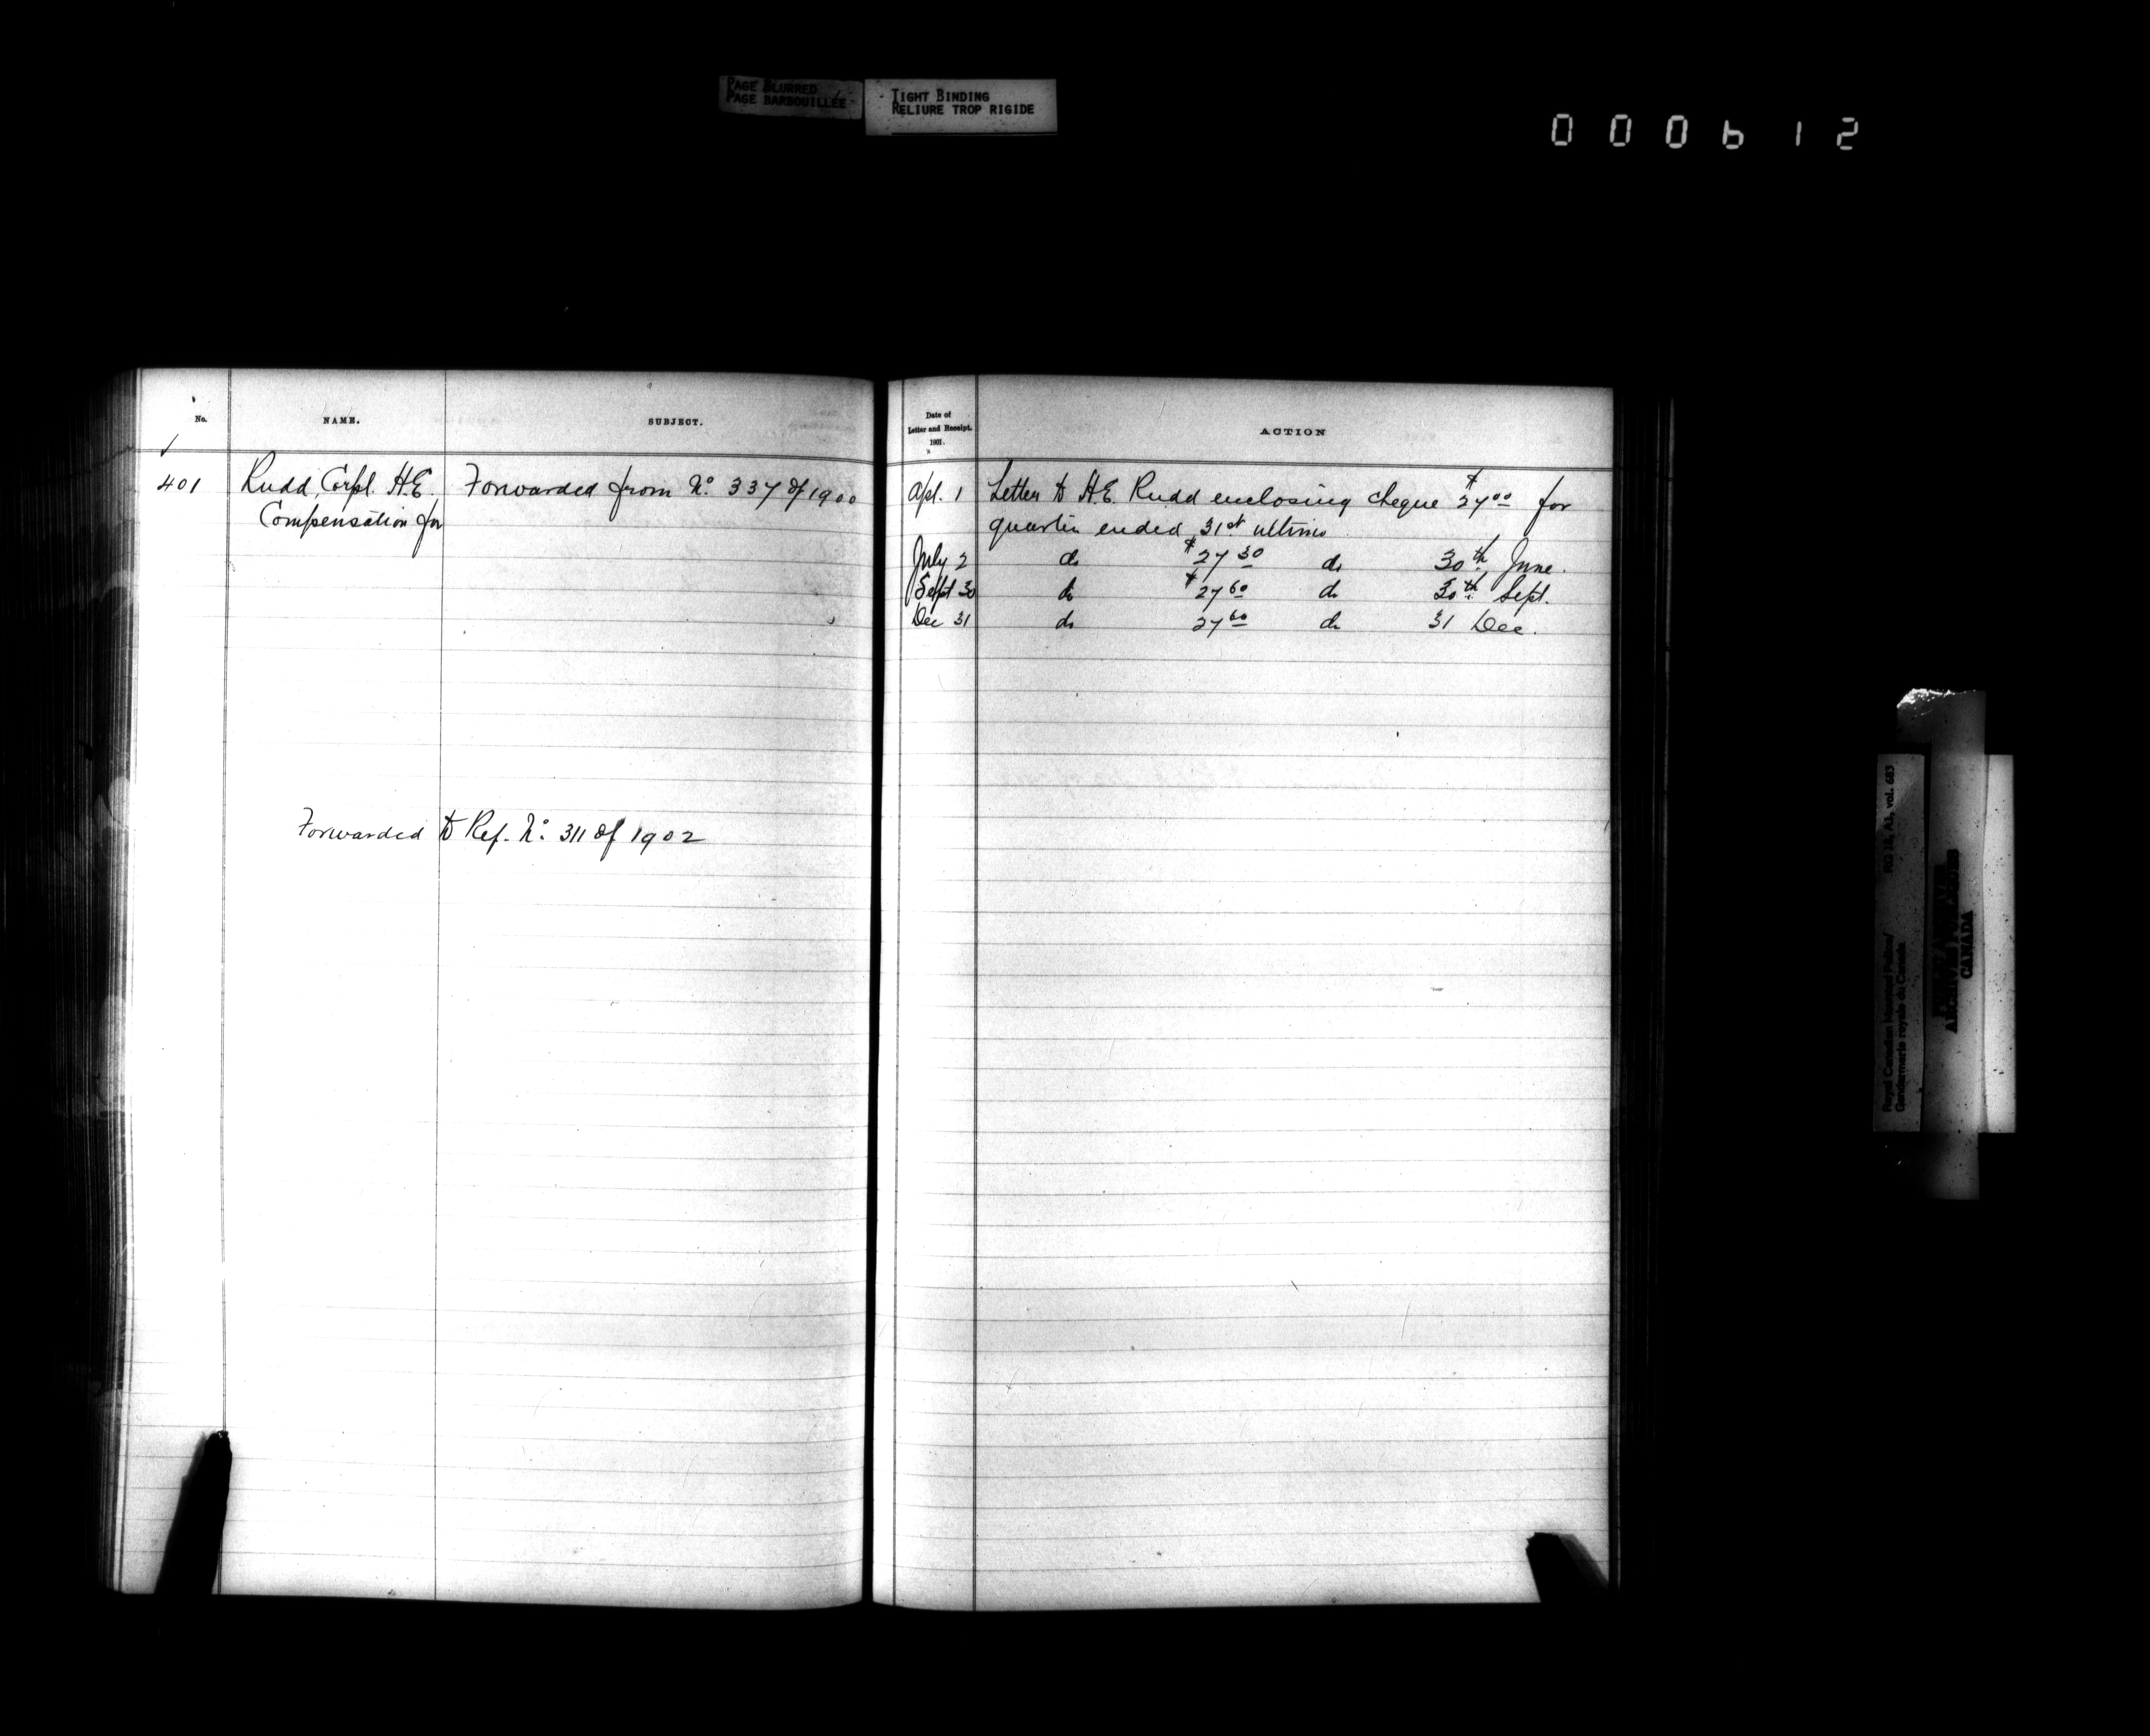 PAGE BLURRED
PAGE BARBOUILLÉE
TIGHT BINDING
RELIURE TROP RIGIDE
000612
No. NAME. SUBJECT.
401 Rudd, Corpl. H.E. Forwarded from No. 337 of 1900
Compensation for
Forwarded to Ref. No. 311 of 1902
Date of
Letter and Receipt.
1901.
ACTION
Apl. 1 Letter to H.E. Rudd enclosing cheque $27 00 for
quarter ended 31st ultimo
July 2 do $27 30 do 30th June.
Sept 30 do $27 60 do 30th Sept.
Dec 31 do 27 60 do 31 Dec.
Royal Canadian Mounted Police/ RG 18, A1, vol. 683
Gendarmerie royale du Canada
PUBLIC ARCHIVES
ARCHIVES PUBLIQUES
CANADA